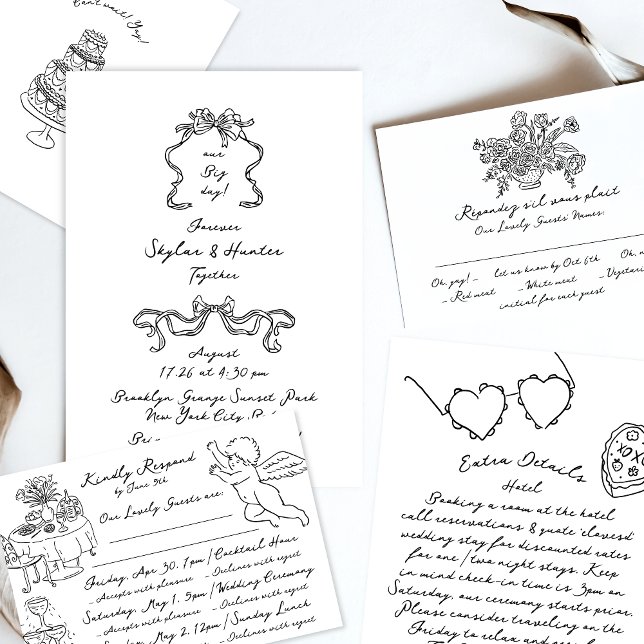 Can't wait! Yay!
our
Big
day!
Forever
Skylar & Hunter
Together
August
17.26 at 4:30 pm
Brooklyn Grange Sunset Park
New York City,
Répondez s'il vous plait
Our Lovely Guests' Names:
Oh, yay! – let us know by Oct 6th Oh, n
– Red meat – White meat – Vegetari
initial for each guest
Kindly Respond
by June 9th
Our Lovely Guests are:
Friday, Apr 30, 7pm / Cocktail Hour
– Accepts with pleasure – Declines with regret
Saturday, May 1, 5pm / Wedding Ceremony
– Accepts with pleasure – Declines with regret
Sunday, May 2, 12pm / Sunday Lunch
– Accepts with pleasure – Declines with regret
XOXO
Extra Details
Hotel
Booking a room at the hotel
call reservations & quote 'clovesd'
wedding stay for discounted rates
for one / two night stays. Keep
in mind check-in time is 3pm on
Saturday, our ceremony starts prior.
Please consider traveling on the
Friday to relax and